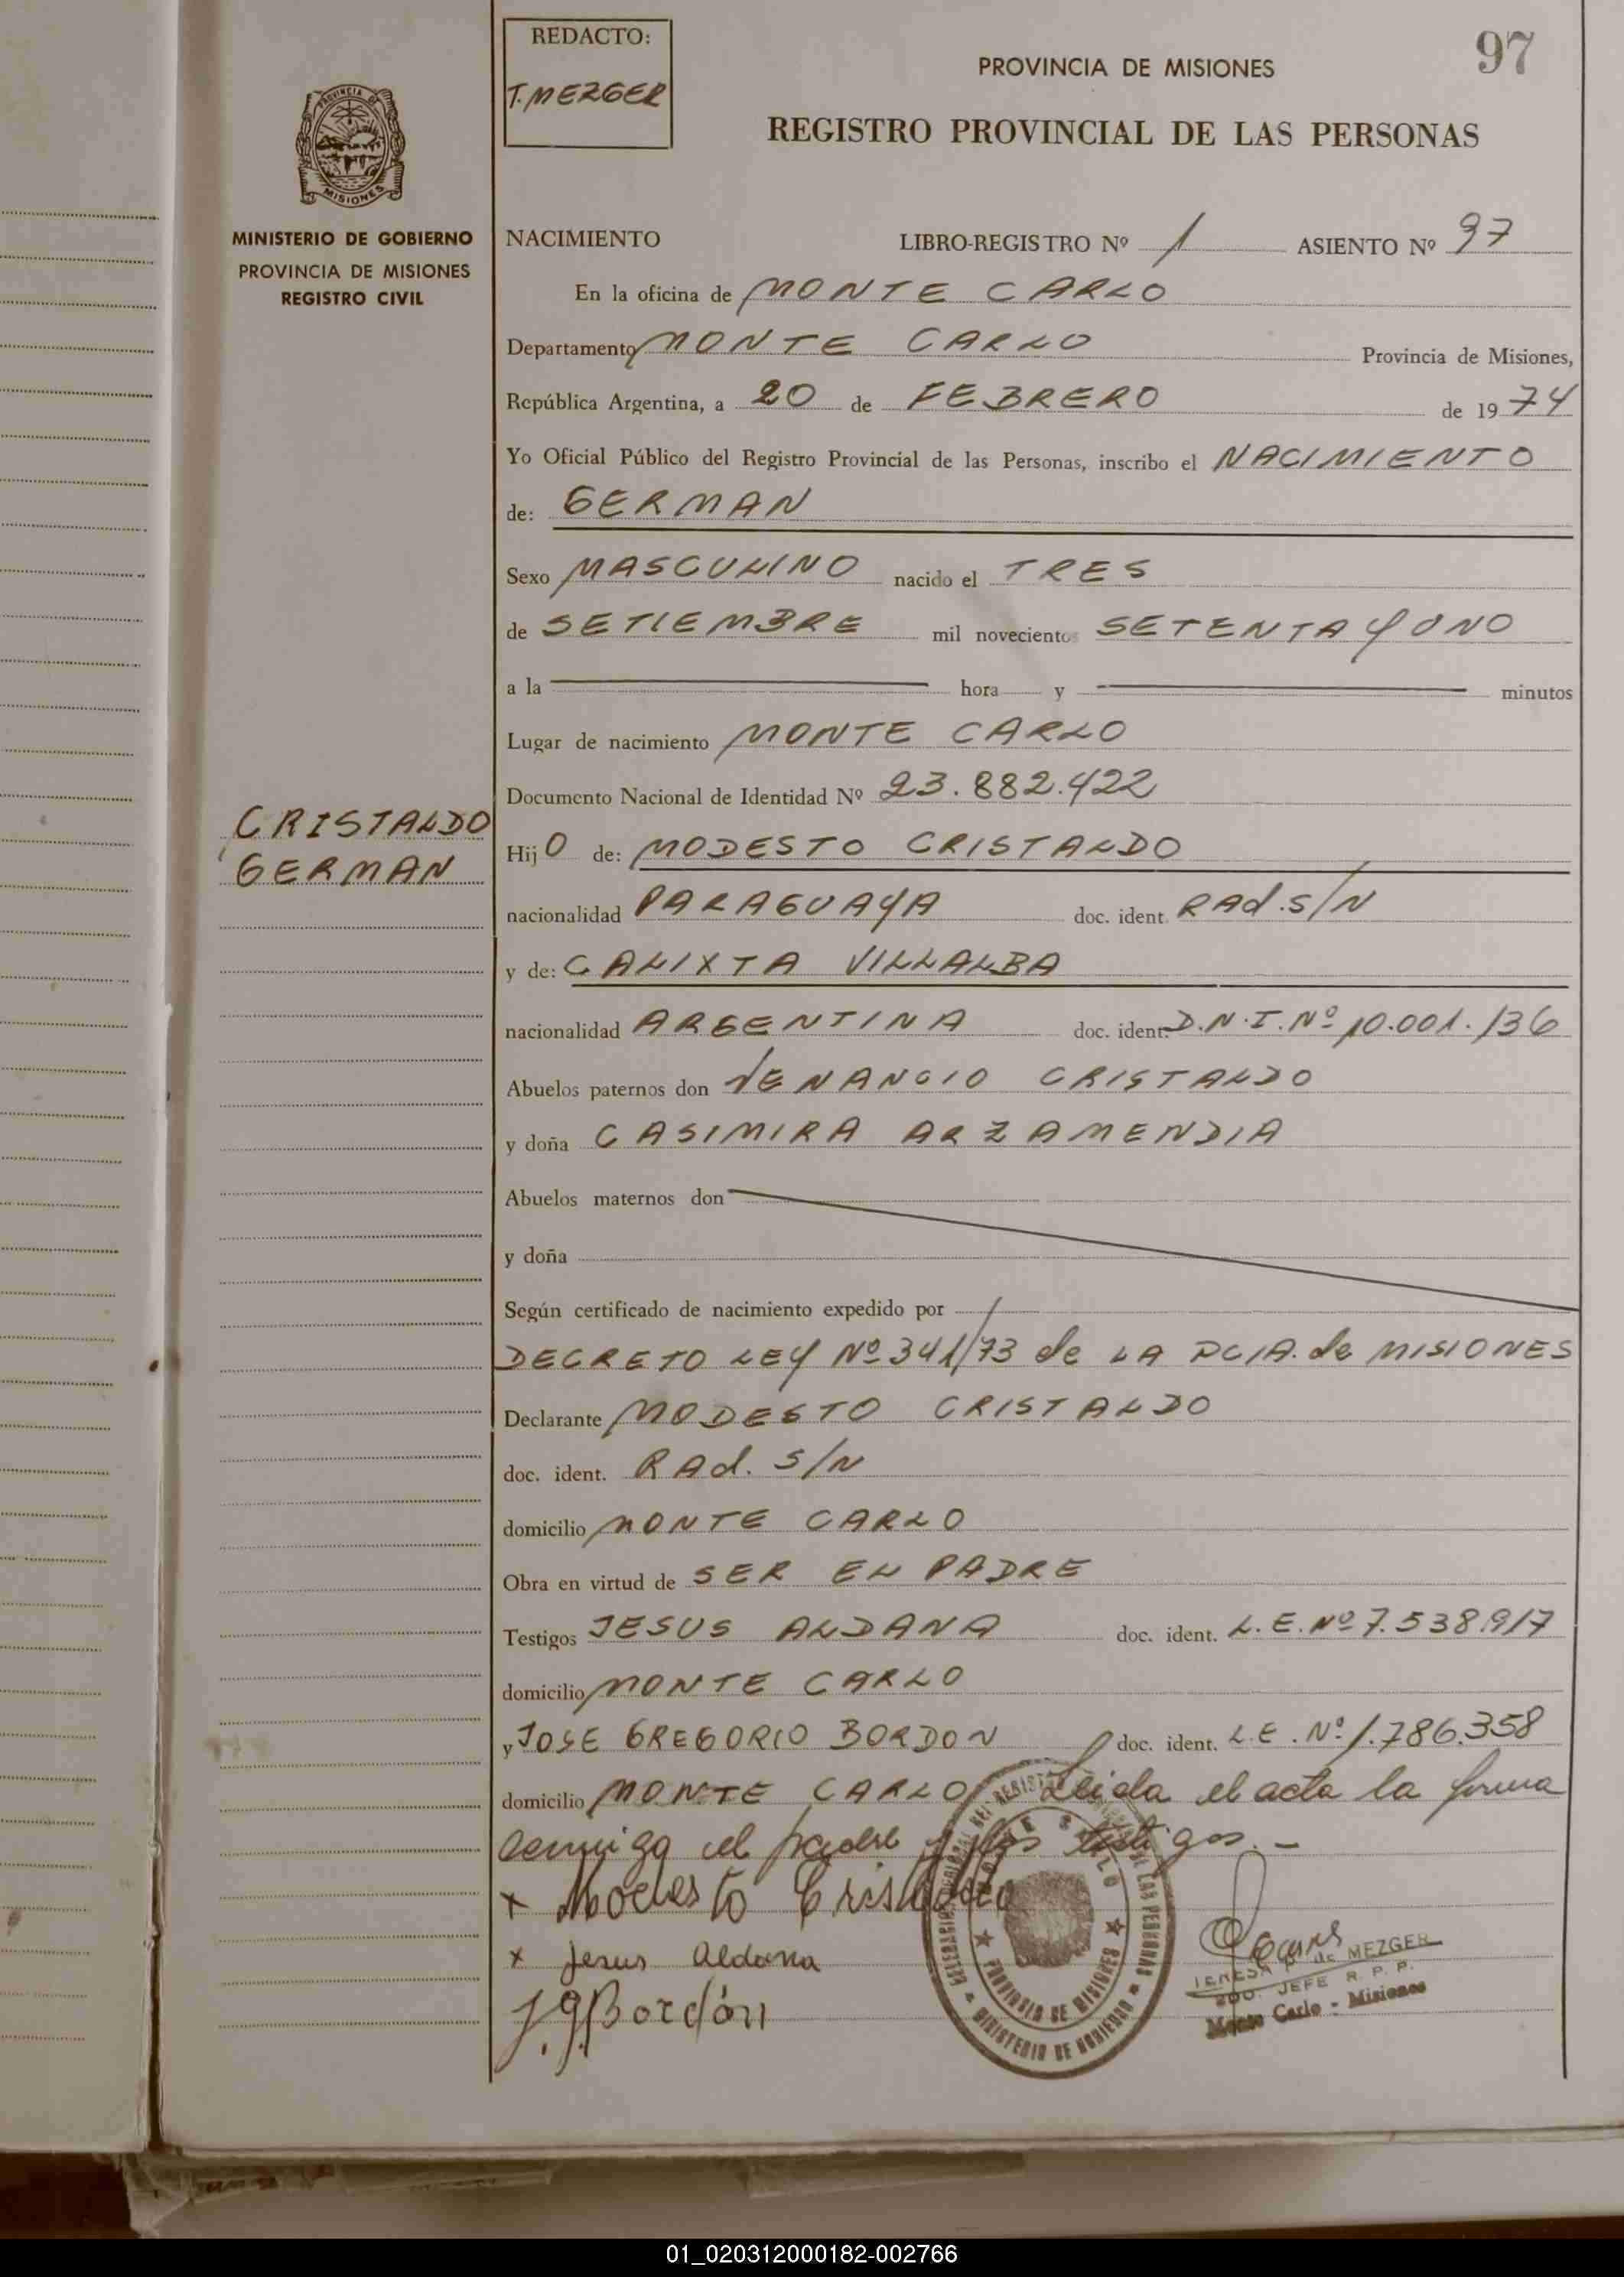 REDACTO:
T. MEZGER
97
PROVINCIA DE MISIONES
REGISTRO PROVINCIAL DE LAS PERSONAS
PROVINCIA DE
MISIONES
MINISTERIO DE GOBIERNO
PROVINCIA DE MISIONES
REGISTRO CIVIL
NACIMIENTO LIBRO-REGISTRO Nº 1 ASIENTO Nº 97
En la oficina de MONTE CARLO
Departamento MONTE CARLO Provincia de Misiones,
República Argentina, a 20 de FEBRERO de 1974
Yo Oficial Público del Registro Provincial de las Personas, inscribo el NACIMIENTO
de: GERMAN
Sexo MASCULINO nacido el TRES
de SETIEMBRE mil novecientos SETENTA Y UNO
a la hora y minutos
Lugar de nacimiento MONTE CARLO
Documento Nacional de Identidad Nº 23.882.422
CRISTALDO
GERMAN
Hijo de: MODESTO CRISTALDO
nacionalidad PARAGUAYA doc. ident. RAd. S/N
y de: CALIXTA VILLALBA
nacionalidad ARGENTINA doc. ident. D.N.I. Nº 10.001.136
Abuelos paternos don VENANCIO CRISTALDO
y doña CASIMIRA ARZAMENDIA
Abuelos maternos don
y doña
Según certificado de nacimiento expedido por /
DECRETO LEY Nº 341/73 de LA PCIA. de MISIONES
Declarante MODESTO CRISTALDO
doc. ident. RAd. S/N
domicilio MONTE CARLO
Obra en virtud de SER EL PADRE
Testigos JESUS ALDANA doc. ident. L.E. Nº 7.538.917
domicilio MONTE CARLO
y JOSE GREGORIO BORDON doc. ident. L.E. Nº 1.786.358
domicilio MONTE CARLO Leida el acta la firma
conmigo el padre y los testigos.-
x Modesto Cristaldo
x Jesus Aldana
J.G. Bordón
PROVINCIA DE MISIONES
MINISTERIO DE GOBIERNO
TERESA P. de MEZGER
2DO. JEFE R. P. P.
Monte Carlo - Misiones
01_020312000182-002766